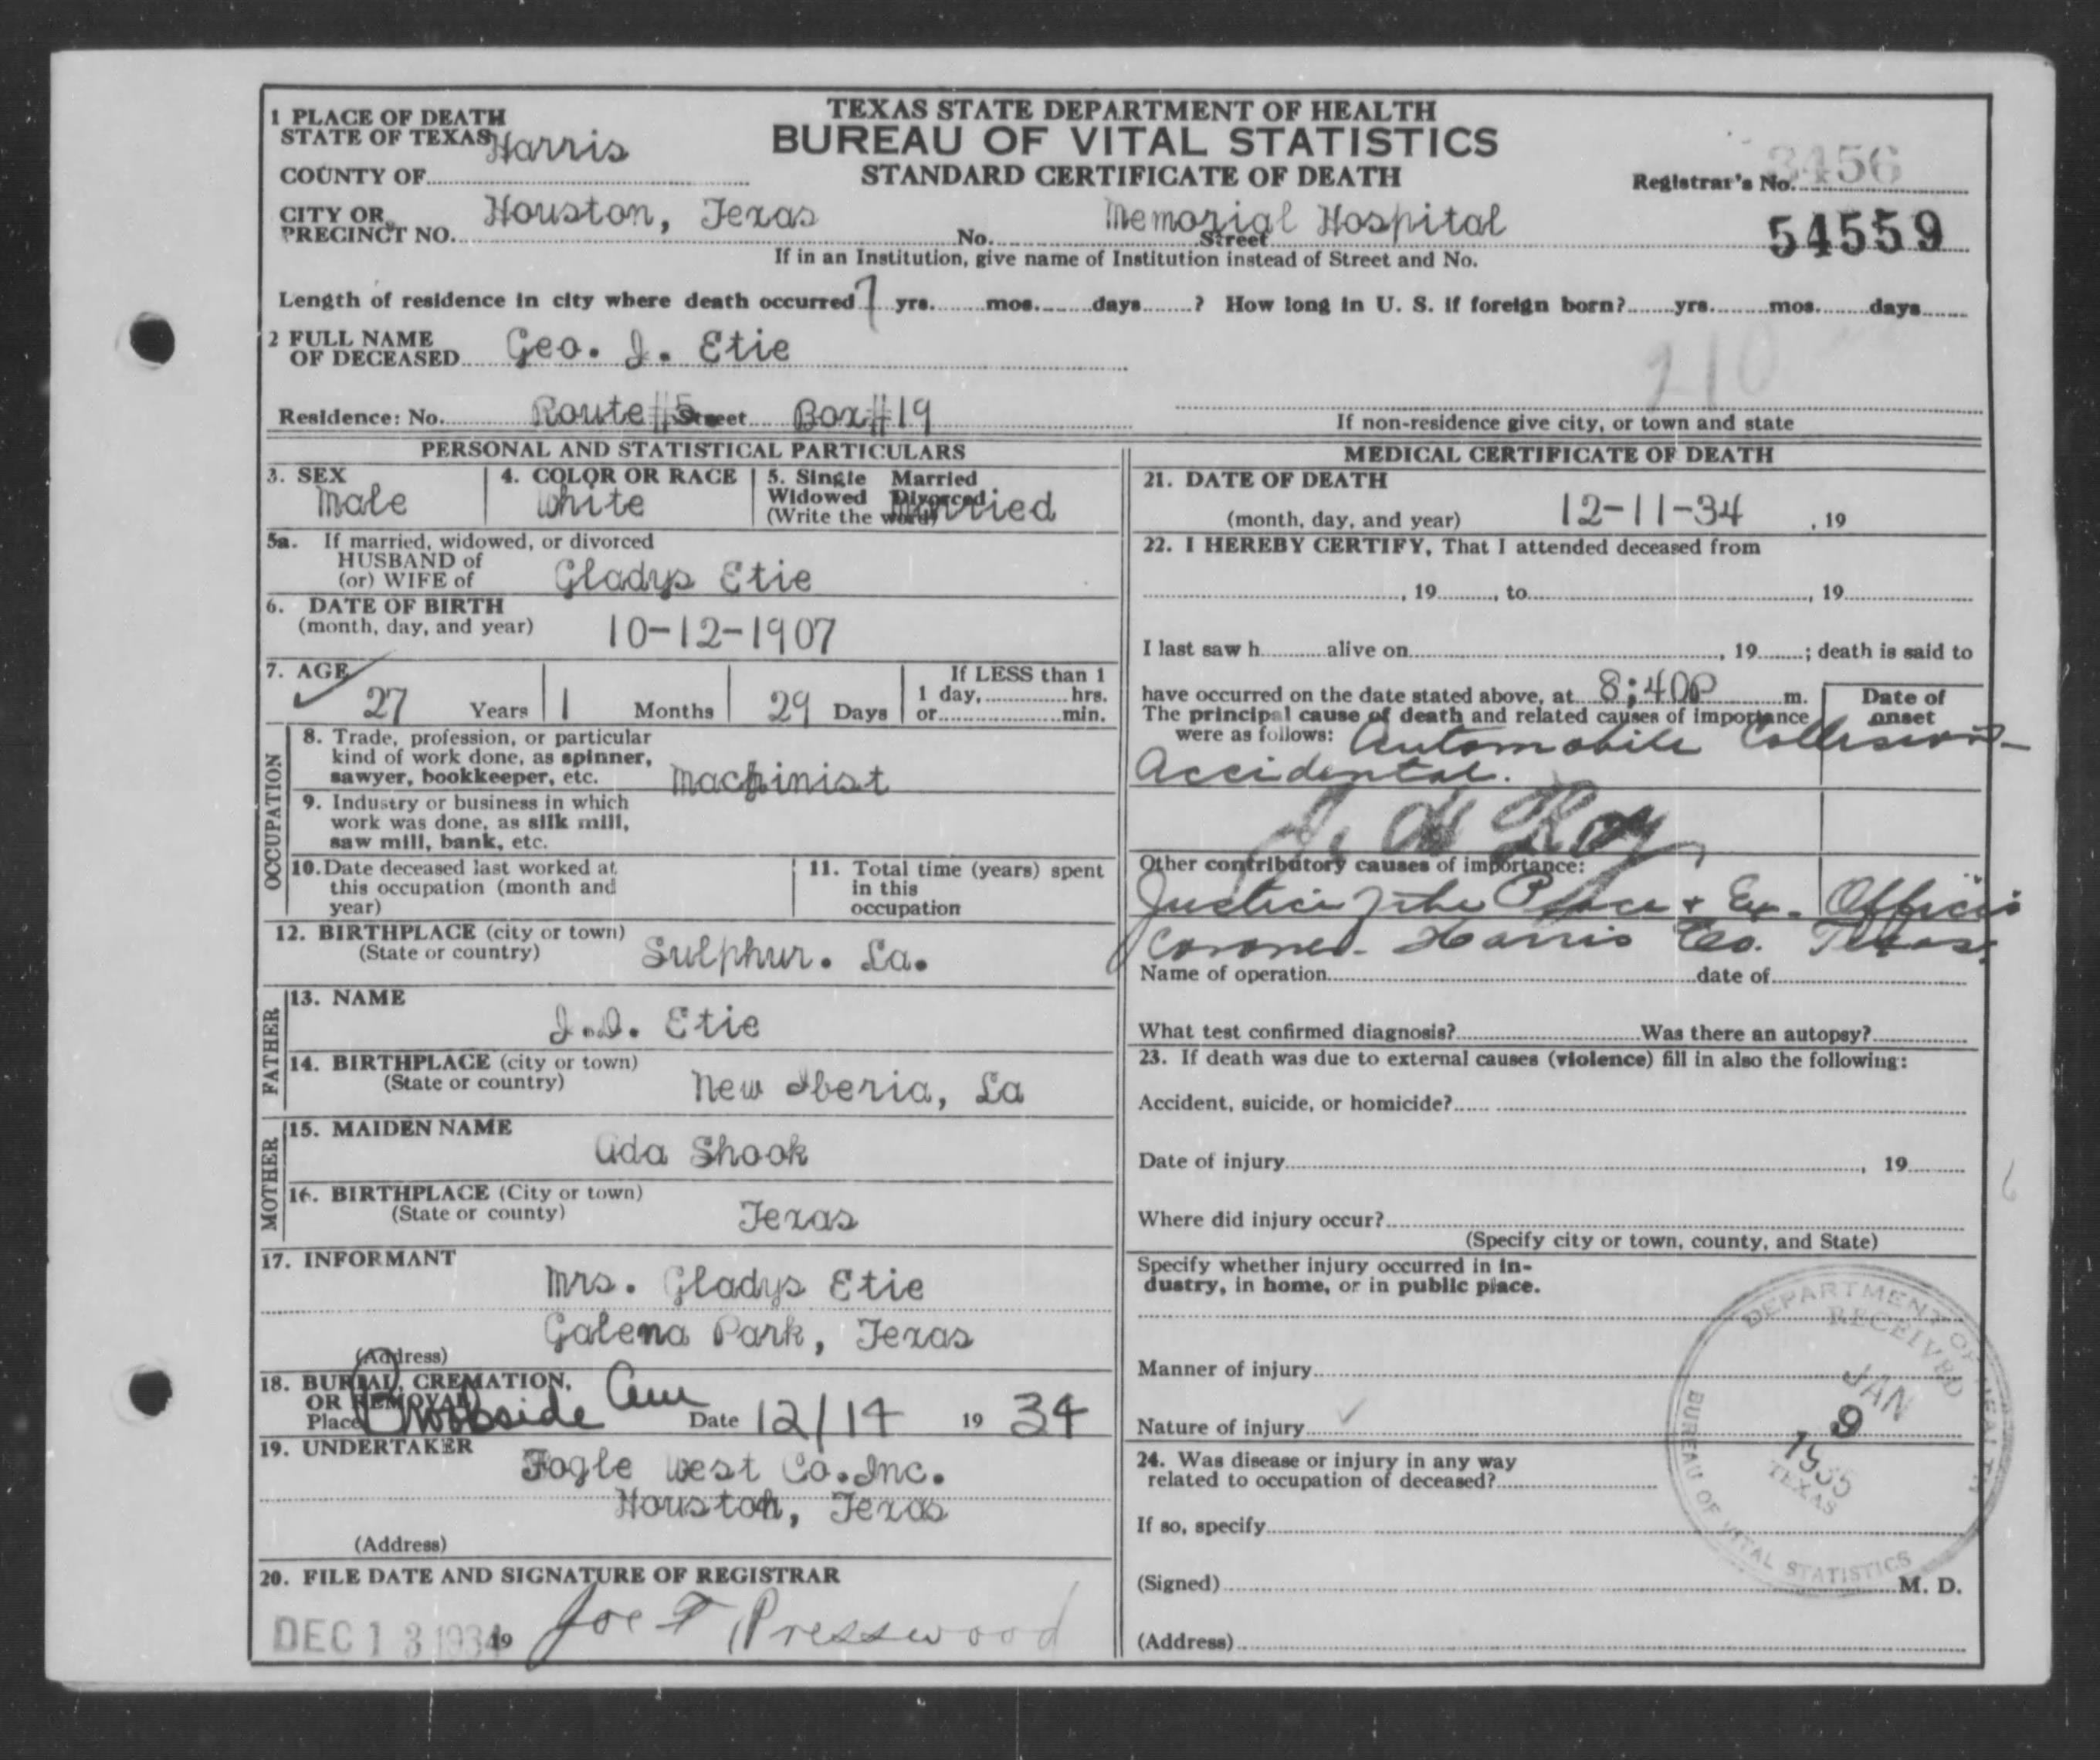 TEXAS STATE DEPARTMENT OF HEALTH
BUREAU OF VITAL STATISTICS
STANDARD CERTIFICATE OF DEATH
1 PLACE OF DEATH
STATE OF TEXAS
COUNTY OF Harris
Registrar's No. 3456
CITY OR PRECINCT NO. Houston, Texas No. Memorial Hospital Street
54559
If in an Institution, give name of Institution instead of Street and No.
Length of residence in city where death occurred 7 yrs. mos. days ? How long in U. S. if foreign born? yrs. mos. days
2 FULL NAME OF DECEASED Geo. J. Etie
210
Residence: No. Route #5 Street Box #19
If non-residence give city, or town and state
PERSONAL AND STATISTICAL PARTICULARS
3. SEX Male
4. COLOR OR RACE White
5. Single Married
Widowed Divorced
(Write the word) Married
5a. If married, widowed, or divorced
HUSBAND of
(or) WIFE of Gladys Etie
6. DATE OF BIRTH
(month, day, and year) 10-12-1907
7. AGE 27 Years 1 Months 29 Days
If LESS than 1
1 day, hrs.
or min.
OCCUPATION
8. Trade, profession, or particular
kind of work done, as spinner,
sawyer, bookkeeper, etc. Machinist
9. Industry or business in which
work was done, as silk mill,
saw mill, bank, etc.
10. Date deceased last worked at
this occupation (month and
year)
11. Total time (years) spent
in this
occupation
12. BIRTHPLACE (city or town)
(State or country) Sulphur. La.
FATHER
13. NAME J.D. Etie
14. BIRTHPLACE (city or town)
(State or country) New Iberia, La
MOTHER
15. MAIDEN NAME Ada Shook
16. BIRTHPLACE (City or town)
(State or county) Texas
17. INFORMANT Mrs. Gladys Etie
(Address) Galena Park, Texas
18. BURIAL, CREMATION,
OR REMOVAL
Place Brookside Cem Date 12/14 19 34
19. UNDERTAKER Fogle West Co. Inc.
Houston, Texas
(Address)
20. FILE DATE AND SIGNATURE OF REGISTRAR
DEC 13 1934 19 Joe F Presswood
MEDICAL CERTIFICATE OF DEATH
21. DATE OF DEATH
(month, day, and year) 12-11-34 , 19
22. I HEREBY CERTIFY, That I attended deceased from
, 19 , to , 19
I last saw h alive on , 19 ; death is said to
have occurred on the date stated above, at 8:40P m.
Date of onset
The principal cause of death and related causes of importance
were as follows: Automobile Collision-
Accidental.
Ray
Other contributory causes of importance:
Justice of the Peace + Ex. Officio
Coroner. Harris Co. Texas.
Name of operation date of
What test confirmed diagnosis? Was there an autopsy?
23. If death was due to external causes (violence) fill in also the following:
Accident, suicide, or homicide?
Date of injury , 19
Where did injury occur?
(Specify city or town, county, and State)
Specify whether injury occurred in in-
dustry, in home, or in public place.
Manner of injury
Nature of injury
24. Was disease or injury in any way
related to occupation of deceased?
If so, specify
(Signed) M. D.
(Address)
DEPARTMENT OF HEALTH
RECEIVED
JAN
9
1935
TEXAS
BUREAU OF VITAL STATISTICS